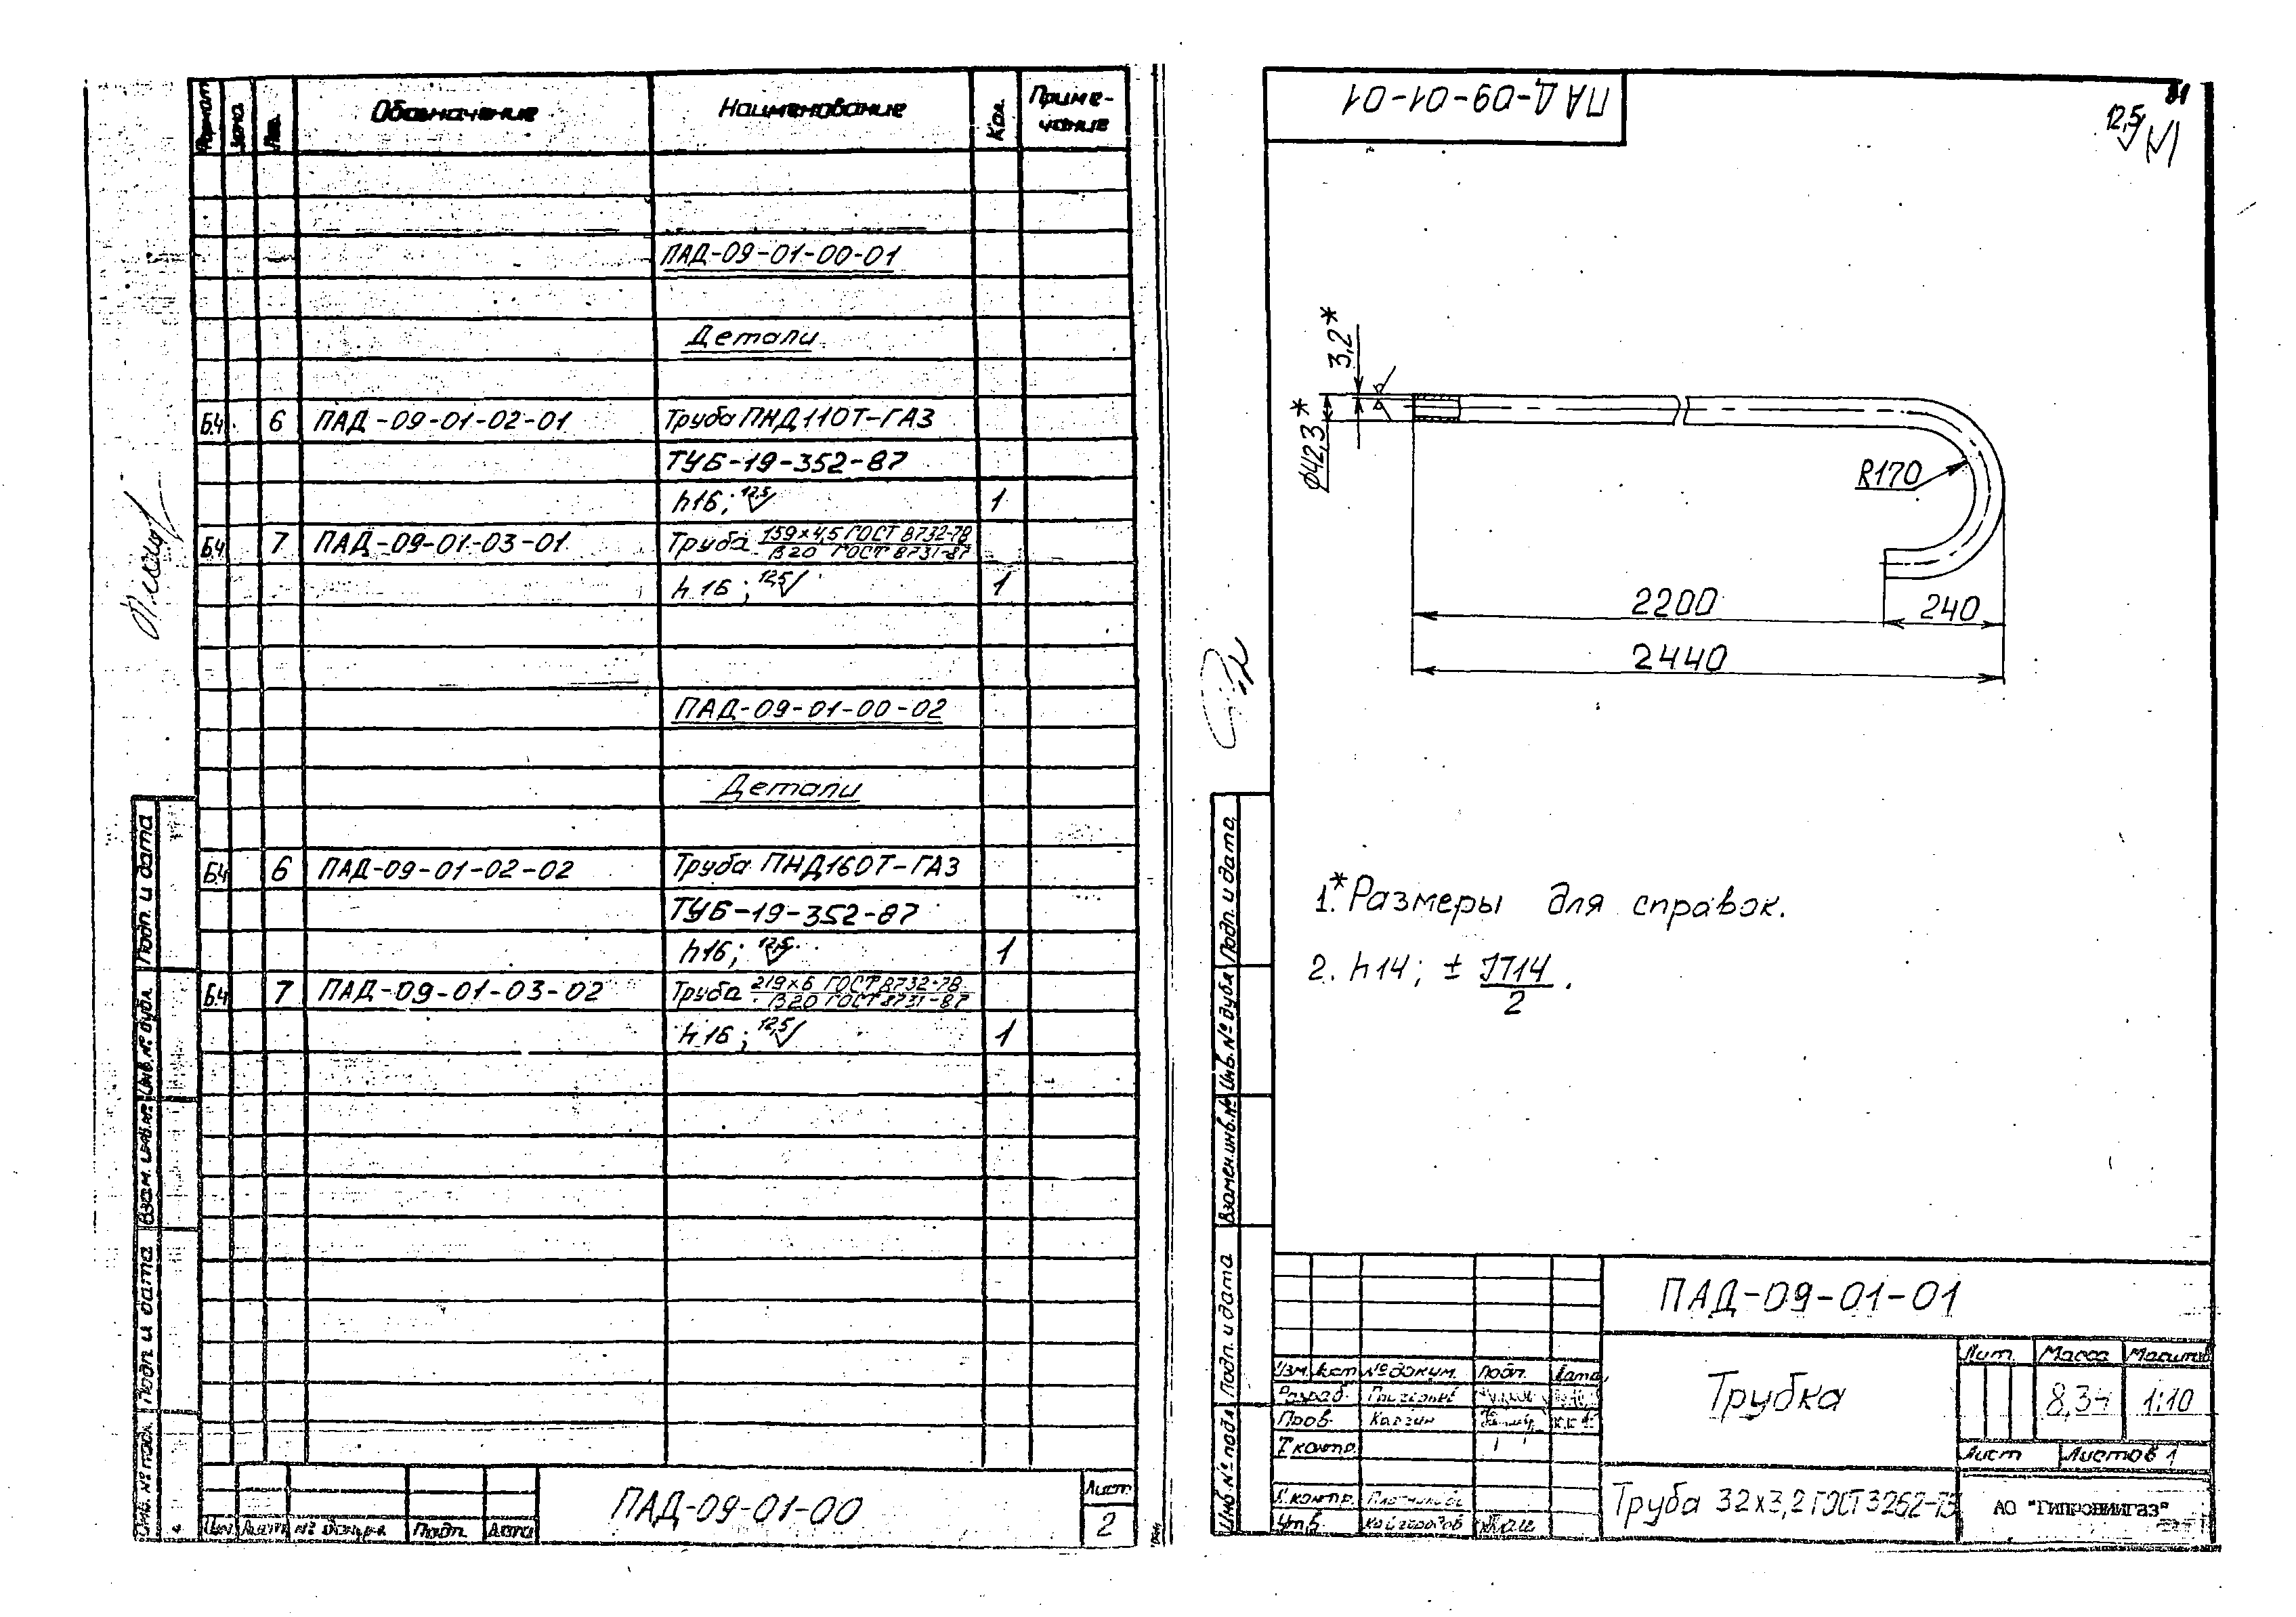 Формат
Зона
Поз.
Обозначение
Наименование
Кол.
Приме-
чание
ПАД-09-01-00-01
Детали
Б.Ч. 6 ПАД-09-01-02-01 Труба ПНД110Т-ГАЗ
ТУ6-19-352-87
h16; 12,5 1
Б.Ч. 7 ПАД-09-01-03-01 Труба 159×4,5 ГОСТ 8732-78
В20 ГОСТ 8731-87
h16; 12,5 1
ПАД-09-01-00-02
Детали
Б.Ч. 6 ПАД-09-01-02-02 Труба ПНД160Т-ГАЗ
ТУ6-19-352-87
h16; 12,5 1
Б.Ч. 7 ПАД-09-01-03-02 Труба 219×6 ГОСТ 8732-78
В20 ГОСТ 8731-87
h16; 12,5 1
Подп. и дата
Инв. № дубл.
Взам. инв. №
Подп. и дата
Инв. № подл.
Изм Лист № докум. Подп. Дата
ПАД-09-01-00
Лист
2
ПАД-09-01-01
12,5
3,2*
Ø42,3*
R170
2200
240
2440
1.* Размеры для справок.
2. h14; ± IT14
2 .
Подп. и дата
Инв. № дубл.
Взамен инв. №
Подп. и дата
Инв. № подл
ПАД-09-01-01
Изм. Лист № докум. Подп. Дата
Разраб.
Пров. Каргин
Т.контр.
Н.контр.
Утв.
Трубка
Лит. Масса Масштаб
8,34 1:10
Лист Листов 1
Труба 32×3,2 ГОСТ 3262-75
АО "ГИПРОНИИГАЗ"